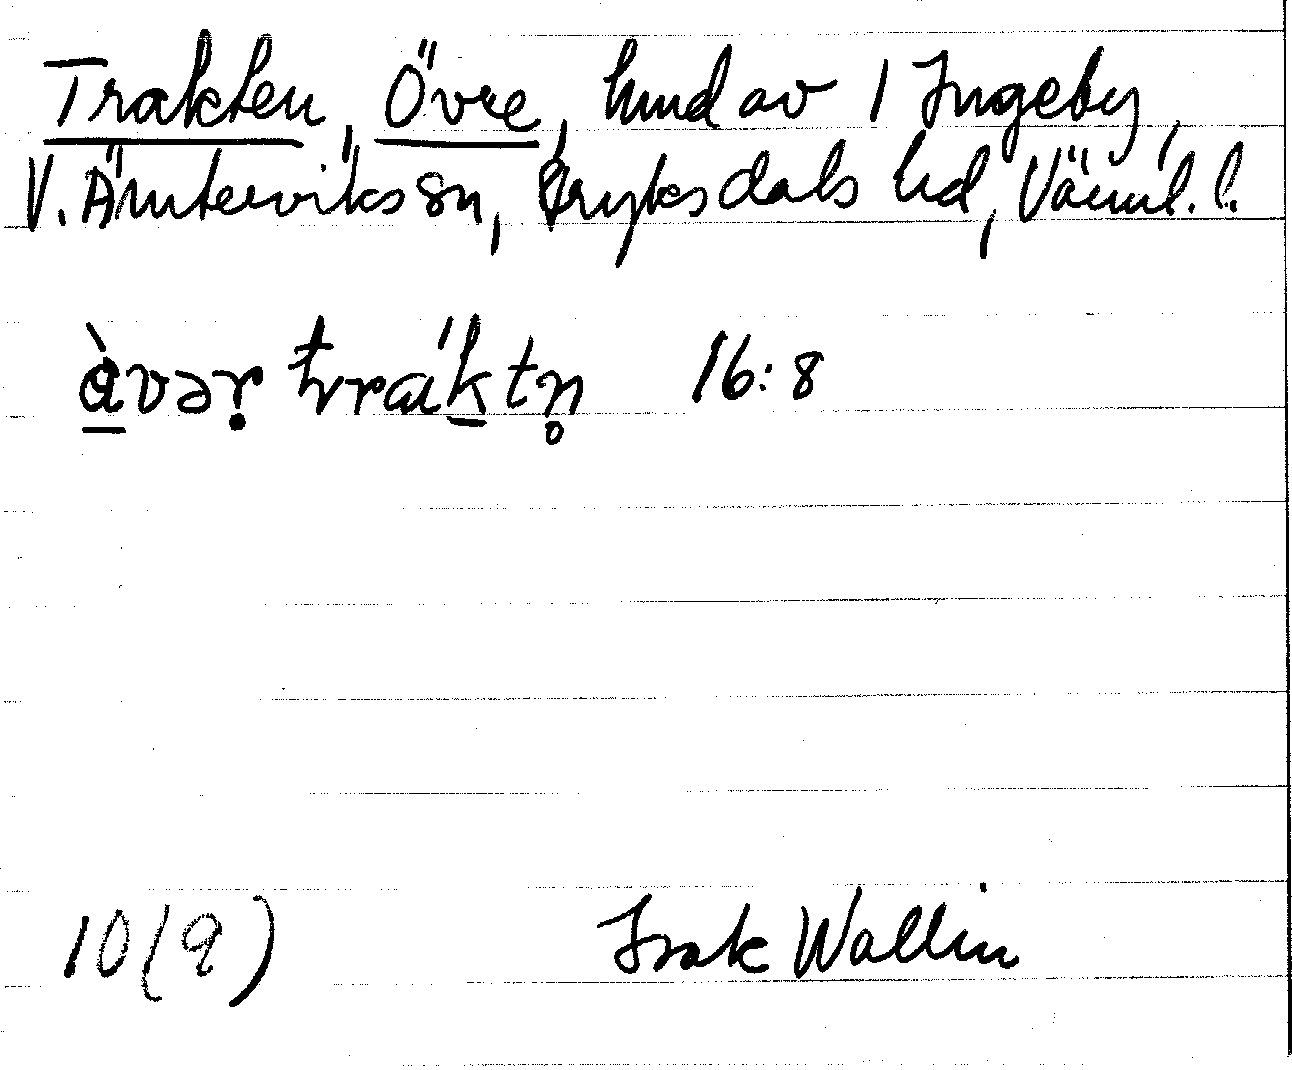 Trakten, Övre, hmd av 1 Ingeby,
V. Ämterviks sn, Fryksdals hd, Värml. l.
àvəṛ tráktn̥ 16:8
10(9)
Isak Wallin